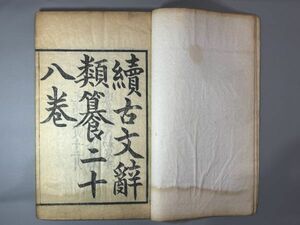 續古文辭
類纂二十
八卷